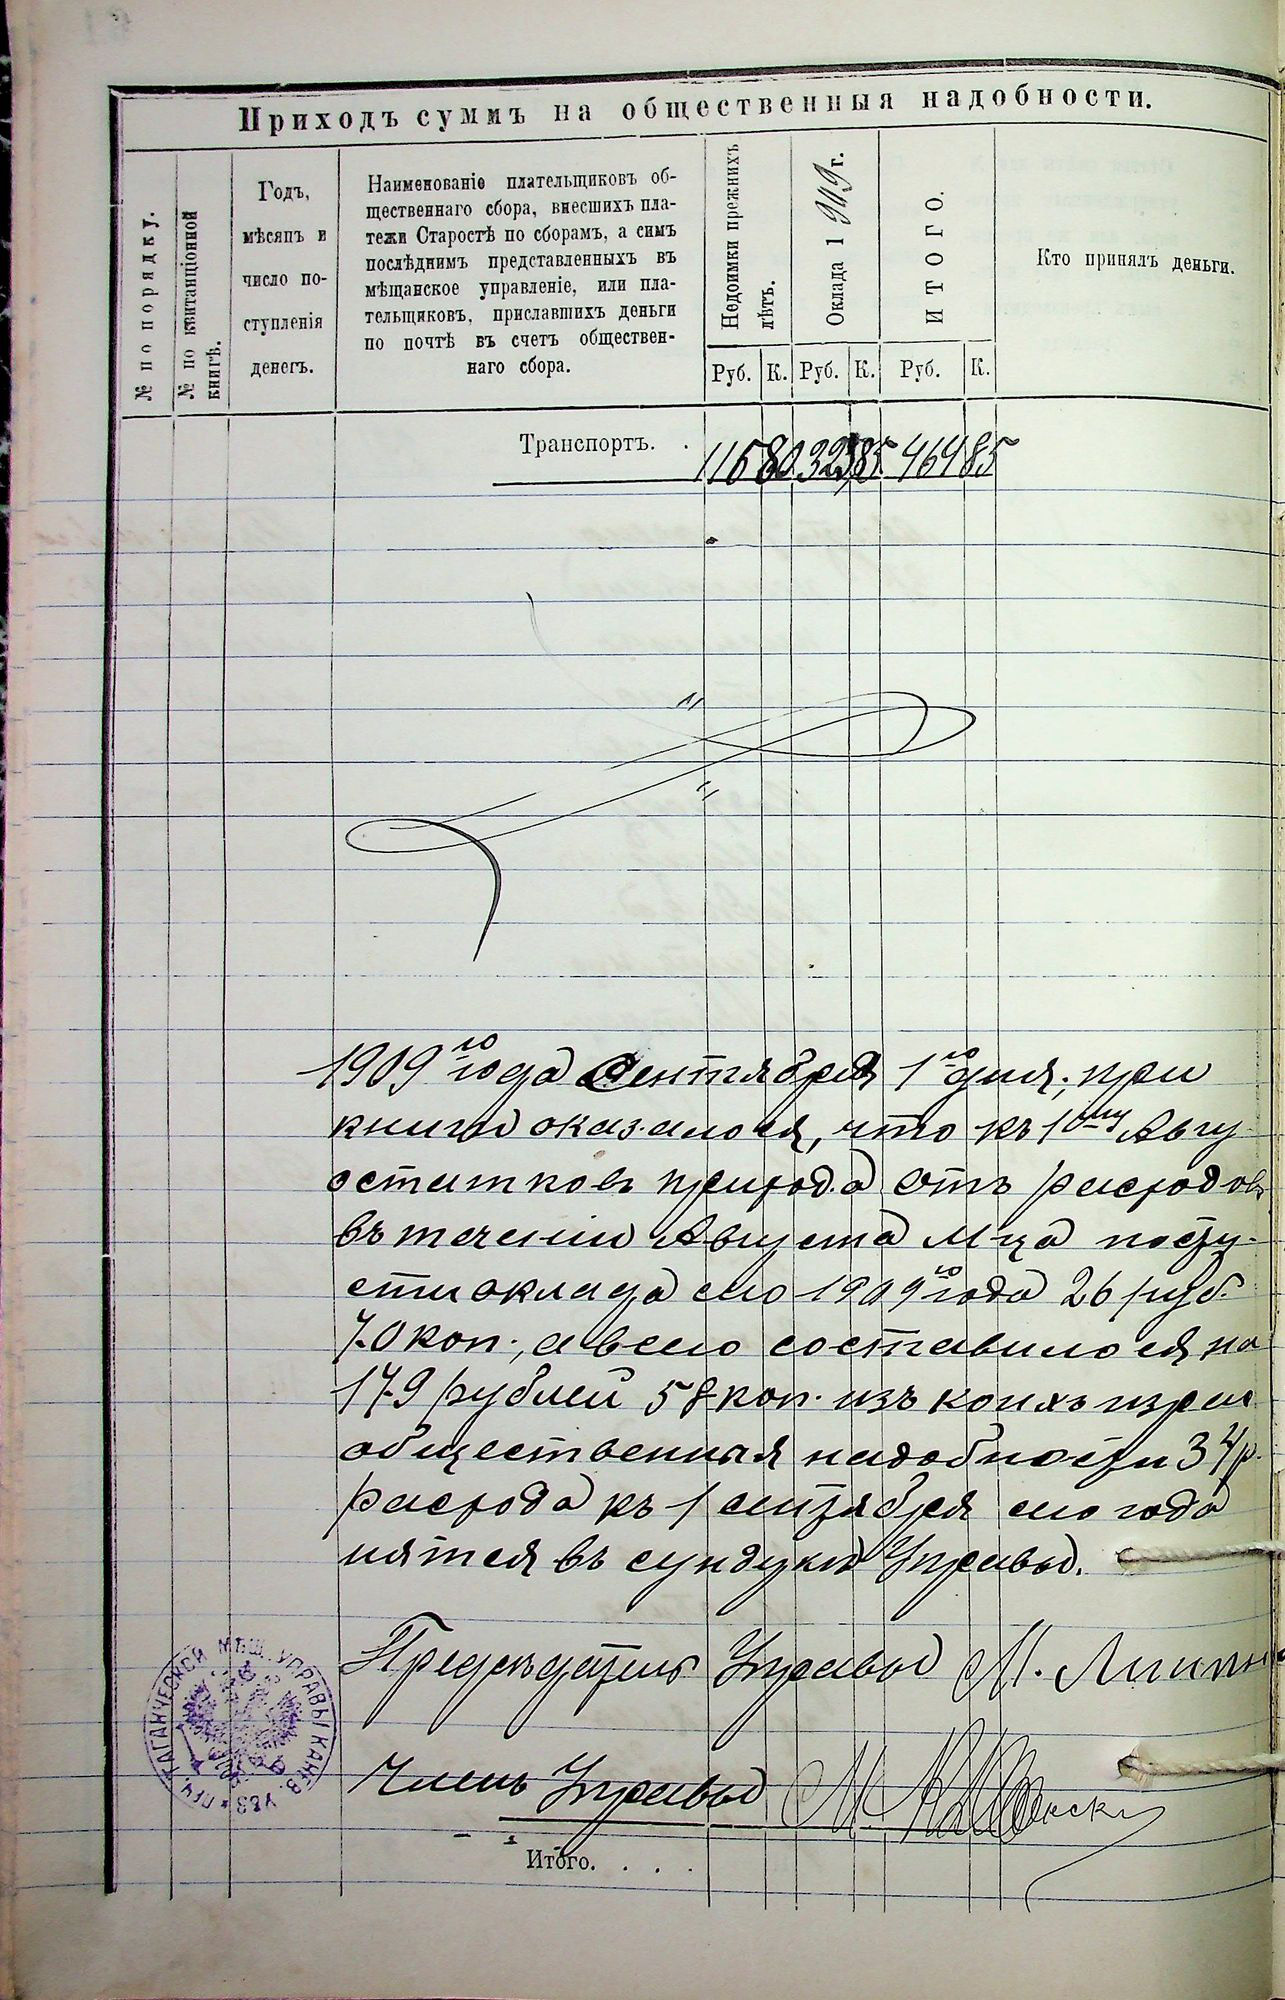 Приходъ суммъ на общественныя надобности.
№ по порядку.
№ по квитанціонной книгѣ.
Годъ,
мѣсяцъ и
число по-
ступленія
денегъ.
Наименованіе плательщиковъ об-
щественнаго сбора, внесшихъ пла-
тежи Старостѣ по сборамъ, а симъ
послѣднимъ представленныхъ въ
мѣщанское управленіе, или пла-
тельщиковъ, приславшихъ деньги
по почтѣ въ счетъ обществен-
наго сбора.
Недоимки прежнихъ лѣтъ.
Оклада 1909 г.
ИТОГО.
Кто принялъ деньги.
Руб. К. Руб. К. Руб. К.
Транспортъ. . 85 464 85
1909го года Сентября 1го дня, при
книги оказалося, что къ 1ому Авгу
остатковъ прихода отъ расходовъ
въ течении Августа М-ца посту-
оклада сего 1909го года 26 руб.
70 коп., а всего составилося на
179 рублей 58 коп. изъ коихъ израс
общественная надобности 34 р.
расхода къ 1 сентября сего года
нятся въ сундукѣ Управы.
Предсѣдатель Управы М.
Членъ Управы М.
ТАГАНЧЕСКОЙ МѢЩ. УПРАВЫ КАНЕВ. УѢЗ. * ПЕЧ.
Итого. . . .